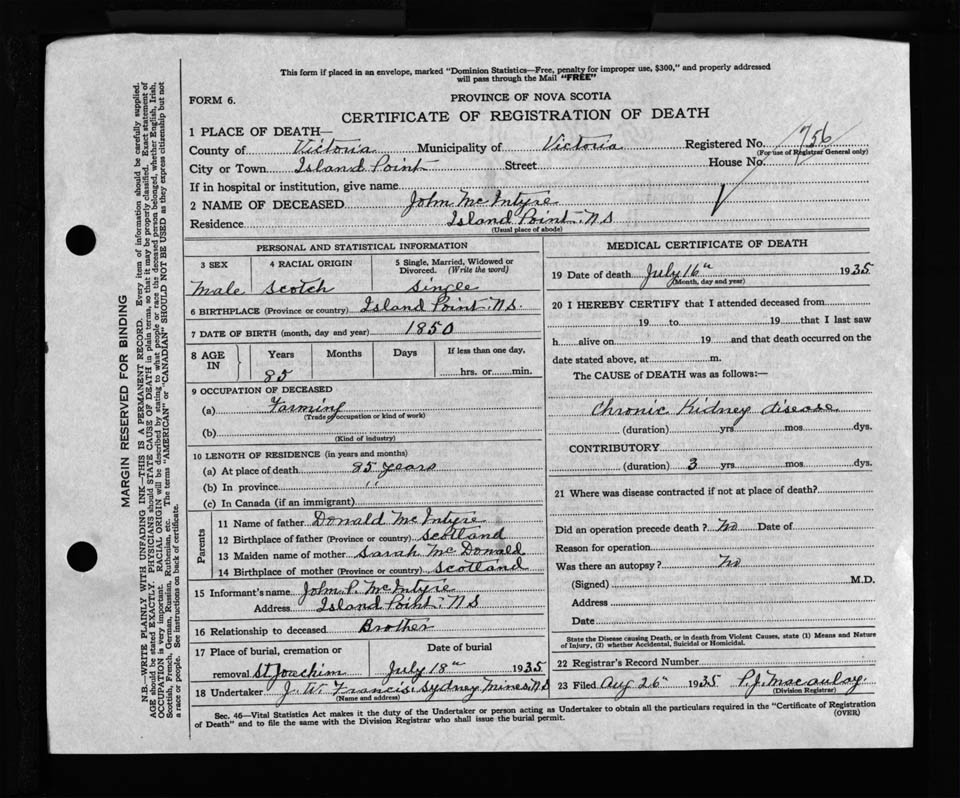 This form if placed in an envelope, marked "Dominion Statistics—Free, penalty for improper use, $300," and properly addressed
will pass through the Mail "FREE"
FORM 6.
PROVINCE OF NOVA SCOTIA
CERTIFICATE OF REGISTRATION OF DEATH
1 PLACE OF DEATH—
County of Victoria Municipality of Victoria Registered No. 756
(For use of Registrar General only)
City or Town Island Point Street House No.
If in hospital or institution, give name
2 NAME OF DECEASED John McIntyre
Residence Island Point. NS
(Usual place of abode)
PERSONAL AND STATISTICAL INFORMATION
3 SEX 4 RACIAL ORIGIN 5 Single, Married, Widowed or
Divorced. (Write the word)
Male Scotch Single
6 BIRTHPLACE (Province or country) Island Point. NS.
7 DATE OF BIRTH (month, day and year) 1850
8 AGE IN Years Months Days If less than one day,
85 hrs. or min.
9 OCCUPATION OF DECEASED
(a) Farming
(Trade, occupation or kind of work)
(b)
(Kind of industry)
10 LENGTH OF RESIDENCE (in years and months)
(a) At place of death 85 years
(b) In province "
(c) In Canada (if an immigrant)
Parents
11 Name of father Donald McIntyre
12 Birthplace of father (Province or country) Scotland
13 Maiden name of mother Sarah McDonald
14 Birthplace of mother (Province or country) Scotland
15 Informant's name John P. McIntyre
Address Island Point. NS
16 Relationship to deceased Brother
17 Place of burial, cremation or Date of burial
removal St Joachim July 18th 1935
18 Undertaker J. W. Francis. Sydney Mines. NS
(Name and address)
MEDICAL CERTIFICATE OF DEATH
19 Date of death July 16th 1935
(Month, day and year)
20 I HEREBY CERTIFY that I attended deceased from
19 to 19 that I last saw
h alive on 19 and that death occurred on the
date stated above, at m.
The CAUSE of DEATH was as follows:—
Chronic Kidney disease
(duration) yrs mos dys.
CONTRIBUTORY
(duration) 3 yrs mos dys.
21 Where was disease contracted if not at place of death?
Did an operation precede death? No Date of
Reason for operation
Was there an autopsy? No
(Signed) M.D.
Address
Date
State the Disease causing Death, or in death from Violent Causes, state (1) Means and Nature
of Injury, (2) whether Accidental, Suicidal or Homicidal.
22 Registrar's Record Number
23 Filed Aug 26th 1935 P.J. Macaulay
(Division Registrar)
Sec. 46—Vital Statistics Act makes it the duty of the Undertaker or person acting as Undertaker to obtain all the particulars required in the "Certificate of Registration
of Death" and to file the same with the Division Registrar who shall issue the burial permit.
(OVER)
MARGIN RESERVED FOR BINDING
N.B.—WRITE PLAINLY WITH UNFADING INK—THIS IS A PERMANENT RECORD. Every item of information should be carefully supplied.
AGE should be stated EXACTLY. PHYSICIANS should STATE CAUSE OF DEATH in plain terms, so that it may be properly classified. Exact statement of
OCCUPATION is very important. RACIAL ORIGIN will be described by stating to what people or race the deceased person belonged, whether English, Irish,
Scottish, French, German, Russian, Ruthenian, etc. The terms "AMERICAN" or "CANADIAN" SHOULD NOT BE USED as they express citizenship but not
a race or people. See instructions on back of certificate.